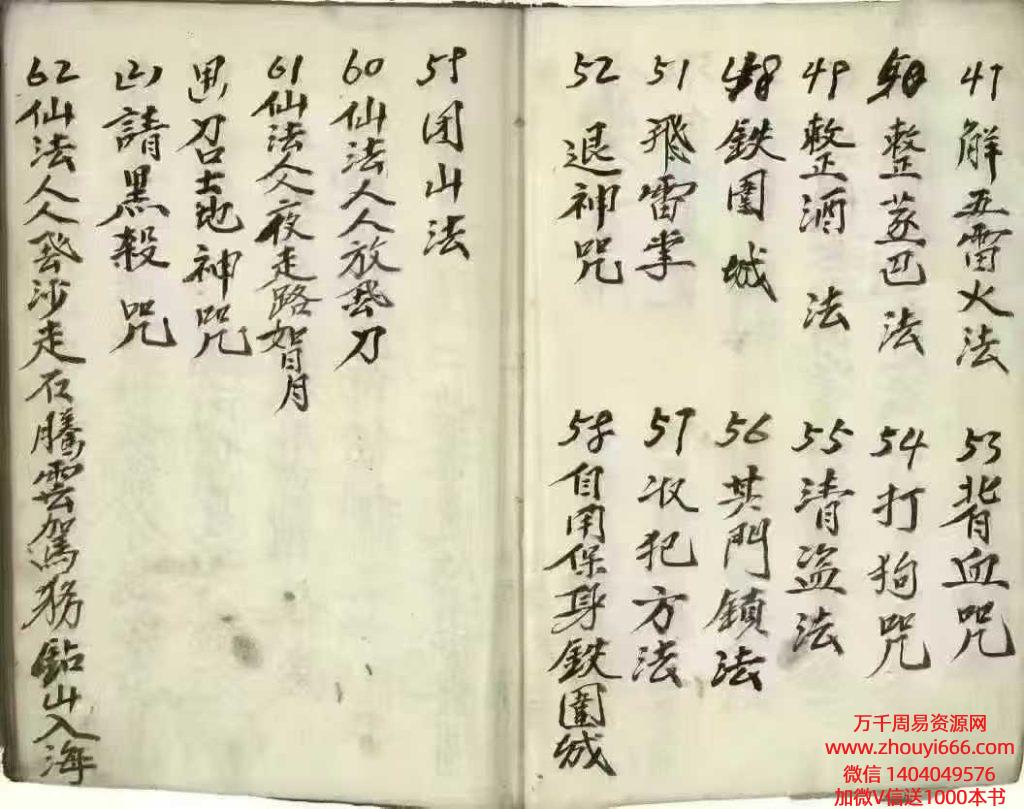 47 解五雷火法
整蒸巴法
49 整酒法
鉄圍城
51 飛雷掌
52 退神咒
53 背血咒
54 打狗咒
55 清盗法
56 其門鎖法
57 収犯方法
58 自用保身鉄圍城
59 团山法
60 仙法人人放飛刀
61 仙法人人夜走路如日月
召土地神咒
請黑殺咒
62 仙法人人飛沙走石騰雲駕務鉆山入海
万千周易资源网
www.zhouyi666.com
微信 1404049576
加微V信送1000本书